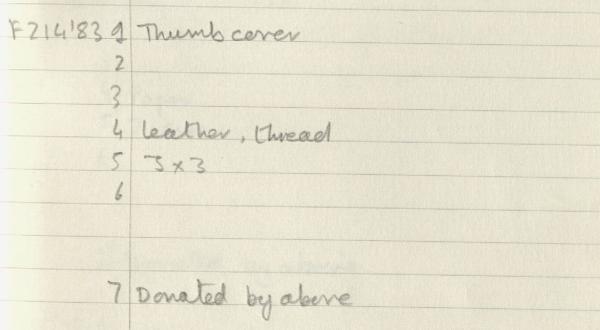 F214'83 1 Thumb cover
2
3
4 leather, thread
5 3 x 3
6
7 Donated by above